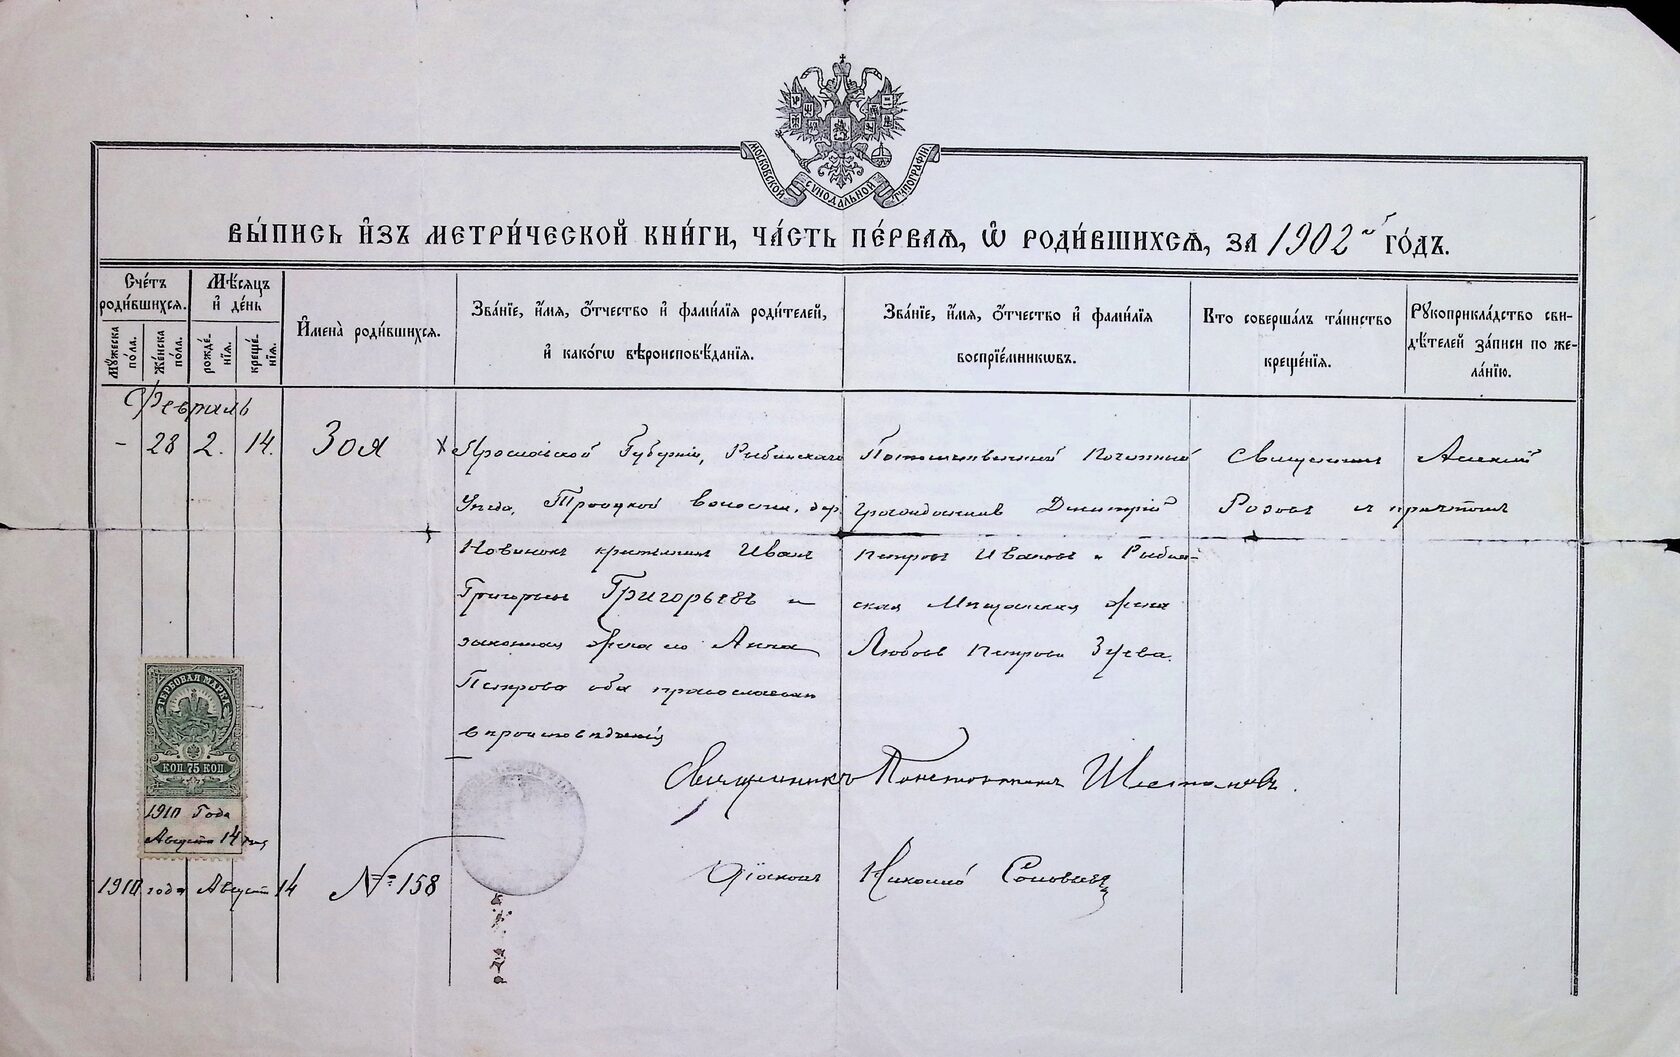 МОСКОВСКОЙ СѴНОДАЛЬНОЙ ТИПОГРАФІИ
ВЫ́ПИСЬ И҆ЗЪ МЕТРИ́ЧЕСКОЙ КНИ́ГИ, ЧА́СТЬ ПЕ́РВАЯ, Ѽ РОДИ́ВШИХСЯ, ЗА 1902й ГО́ДЪ.
Сче́тъ роди́вшихся.
Мꙋ́жеска по́ла.
Же́нска по́ла.
Мѣ́сяцъ и҆ де́нь
рожде́нїя.
креще́нїя.
И҆мена̀ роди́вшихся.
Зва́нїе, и҆́мя, ѻ҆́тчество и҆ фами́лїя роди́телей,
и҆ како́гѡ вѣроисповѣ́данїя.
Зва́нїе, и҆́мя, ѻ҆́тчество и҆ фами́лїя
воспрїе́мникѡвъ.
Кто соверша́лъ та́инство
креще́нїя.
Рꙋкоприкла́дство сви-
дѣ́телей за́писи по же-
ла́нїю.
Февраль
- 28 2. 14. Зоя
Ярославской Губерніи, Рыбинскаго
Уѣзда, Троицкой волости, дер.
Новинок крестьянин Иван
Григорьев Григорьевъ и
законная жена его Анна
Петрова оба православнаго
вѣроисповѣданія
Потомственный Почетный
гражданинъ Димитрій
Петровъ Ивановъ и Рыбин-
ская Мѣщанская жена
Любовь Петрова Зуева.
Священник Алексій
Розовъ с причтом
Священникъ Константинъ Шестаковъ.
Діаконъ Николай Соловьевъ
ГЕРБОВАЯ МАРКА
КОП. 75 КОП.
1910 Года
Августа 14 дня
1910 года Август 14 № 158